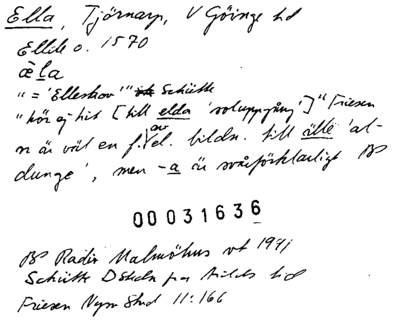 Ella, Tjörnarp, V Göinge hd
Ellde o. 1570
æ̀la
"= 'Elleskov'" Schütte
"hör ej hit [till elda 'soluppgång']" Friesen
n är väl en f. av el. bildn. till älle 'al-
dunge', men -a är svårförklarligt BP
00031636
BP Radix Malmöhus vt 1971
Schütte hd
Friesen Nysv Stud 11:166